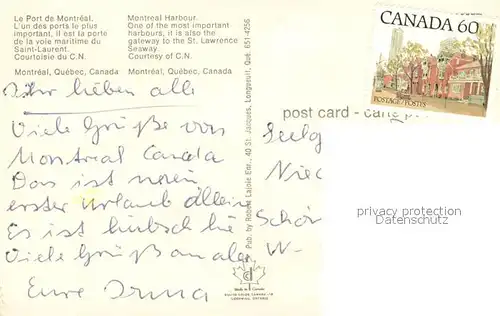 Le Port de Montréal.
L'un des ports le plus
important, il est la porte
de la voie maritime du
Saint-Laurent.
Courtoisie du C.N.
Montréal, Québec, Canada
Montreal Harbour.
One of the most important
harbours, it is also the
gateway to the St. Lawrence
Seaway.
Courtesy of C.N.
Montréal, Québec, Canada
Ihr lieben alle
Viele Grüße von
Montreal Canada
Das ist mein
erster Urlaub allein
Es ist hübsch hie
Viele Grüße an alle
Eure Irma
Pub. by Robert Lajoie Enr., 40 St. Jacques, Longueuil, Qué. 651-4256
CANADA 60
POSTAGE/POSTES
post card - ca
Seelg
Nied
Schön
W-
privacy protection
Datenschutz
Made in Canada